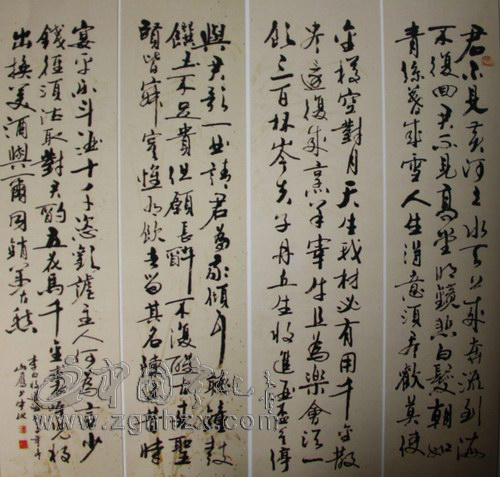 君不見黃河之水天上來奔流到海
不復回君不見高堂明鏡悲白髮朝如
青絲暮成雪人生得意須盡歡莫使
金樽空對月天生我材必有用千金散
盡還復來烹羊宰牛且為樂會須一
飲三百杯岑夫子丹丘生將進酒莫停
與君歌一曲請君為我傾耳聽鐘鼓
饌玉不足貴但願長醉不復醒古來聖
賢皆寂寞惟有飲者留其名陳王昔時
宴平樂斗酒十千恣歡謔主人何為言少
錢徑須沽取對君酌五花馬千金裘呼兒將
出換美酒與爾同銷萬古愁
李白將進酒